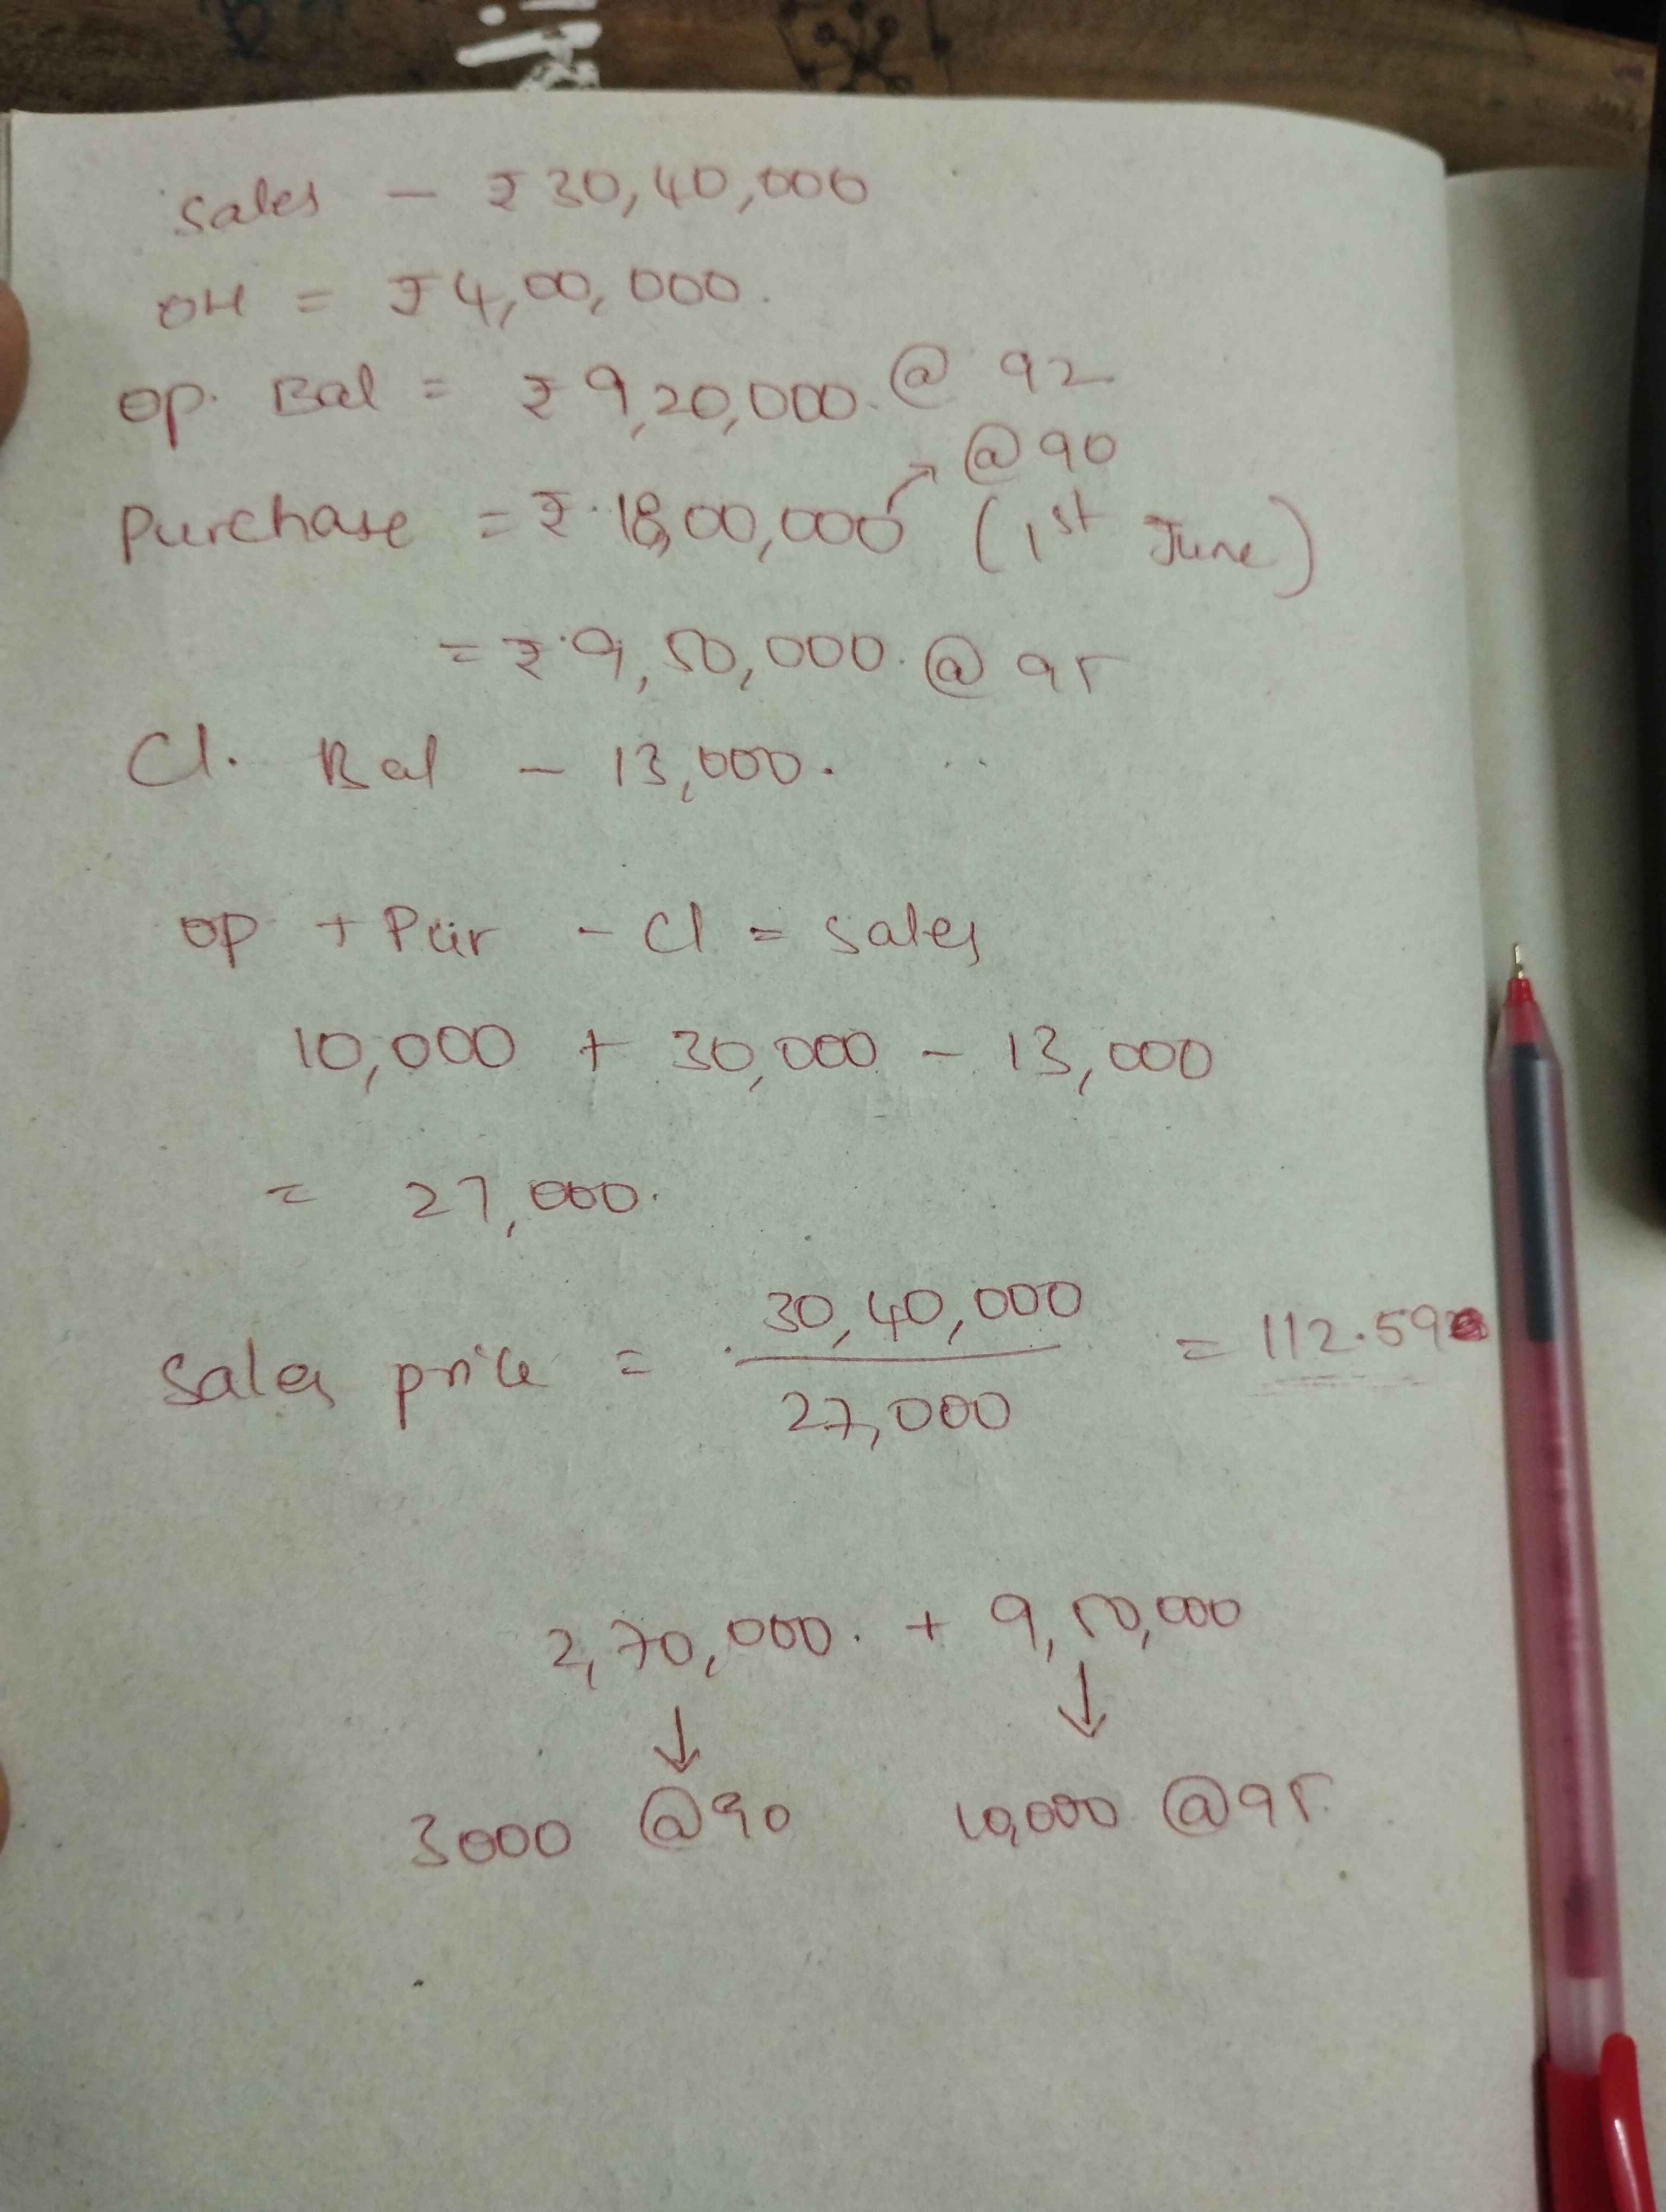 Sales - ₹30,40,000
OH = ₹4,00,000.
OP. Bal = ₹9,20,000. @ 92
@90
Purchase = ₹.18,00,000 (1st June)
= ₹.9,50,000. @ 95
Cl. Bal - 13,000.
OP + Pur - Cl = Sales
10,000 + 30,000 - 13,000
= 27,000.
30,40,000
Sales price = = 112.59
27,000
2,70,000. + 9,50,000
3000 @90 10,000 @95